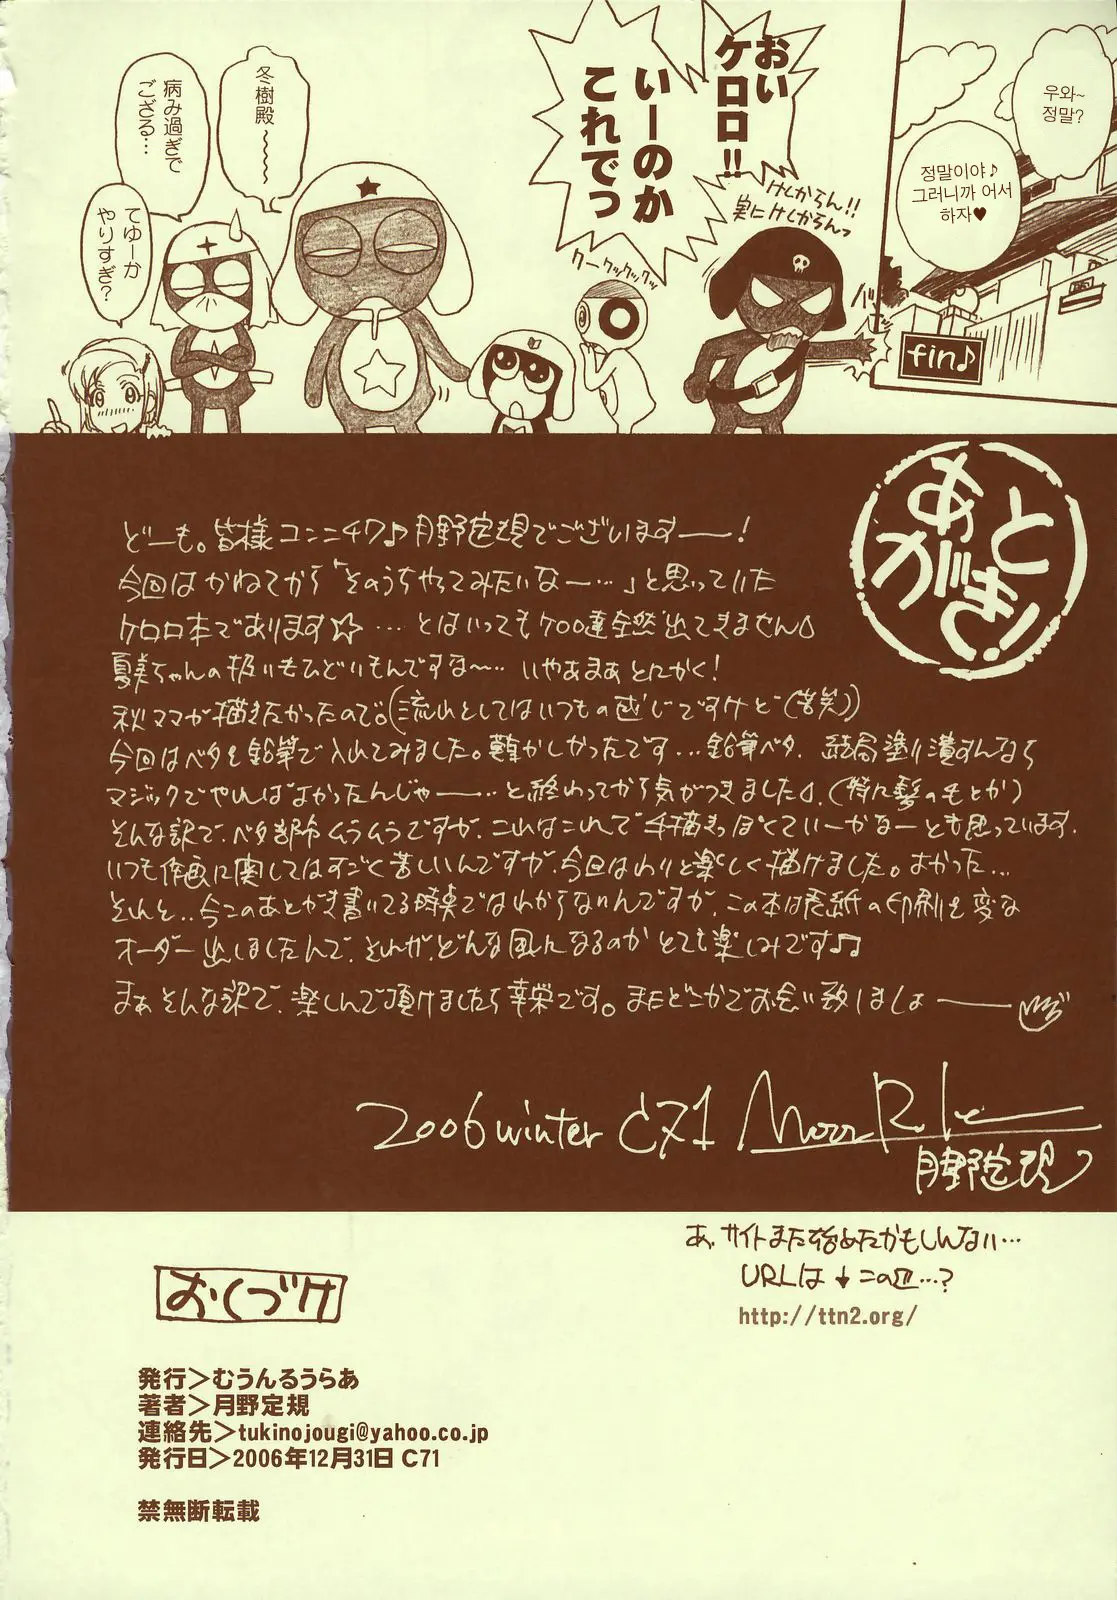 우와~
정말?
정말이야♪
그러니까 어서
하자♥
fin♪
おい
ケロロ!!
いーのか
これでっ
けしからん!!
実にけしからんっ
クークックックッ
冬樹殿〜〜〜
病み過ぎで
ござる…
てゆーか
やりすぎ?
あとがき!
どーも。皆様コンニチワ♪月野定規でございますー!
今回はかねてから「そのうちやってみたいなー…」と思っていた
ケロロ本であります☆…とはいってもケロロ達全然出てきません
夏美ちゃんの扱いもひどいもんですな〜…いやあまぁとにかく!
秋ママが描きたかったので。(流れとしてはいつもの感じですけど(苦笑))
今回はベタを鉛筆で入れてみました。難かしかったです…鉛筆ベタ。結局塗り潰すんなら
マジックでやればよかったんじゃー…と終わってから気がつきました。(特に髪の毛とか)
そんな訳で、ベタ部分ムラムラですが、これはこれで手描きっぽくていーかなーとも思っています。
いつも作画に関してはすごく苦しいんですが、今回はわりと楽しく描けました。よかった…
それと..今このあとがき書いてる時点ではわからないんですが、この本は表紙の印刷を変な
オーダー出しましたんで、それが、どんな風になるのかとても楽しみです♫
まぁそんな訳で、楽しんで頂けましたら幸栄です。またどこかでお会い致しましょー
2006 winter C71
月野定規
あ、サイトまた始めたかもしんない…
URLは↓この辺…?
http://ttn2.org/
おくづけ
発行＞むうんるうらあ
著者＞月野定規
連絡先＞tukinojougi@yahoo.co.jp
発行日＞2006年12月31日 C71
禁無断転載